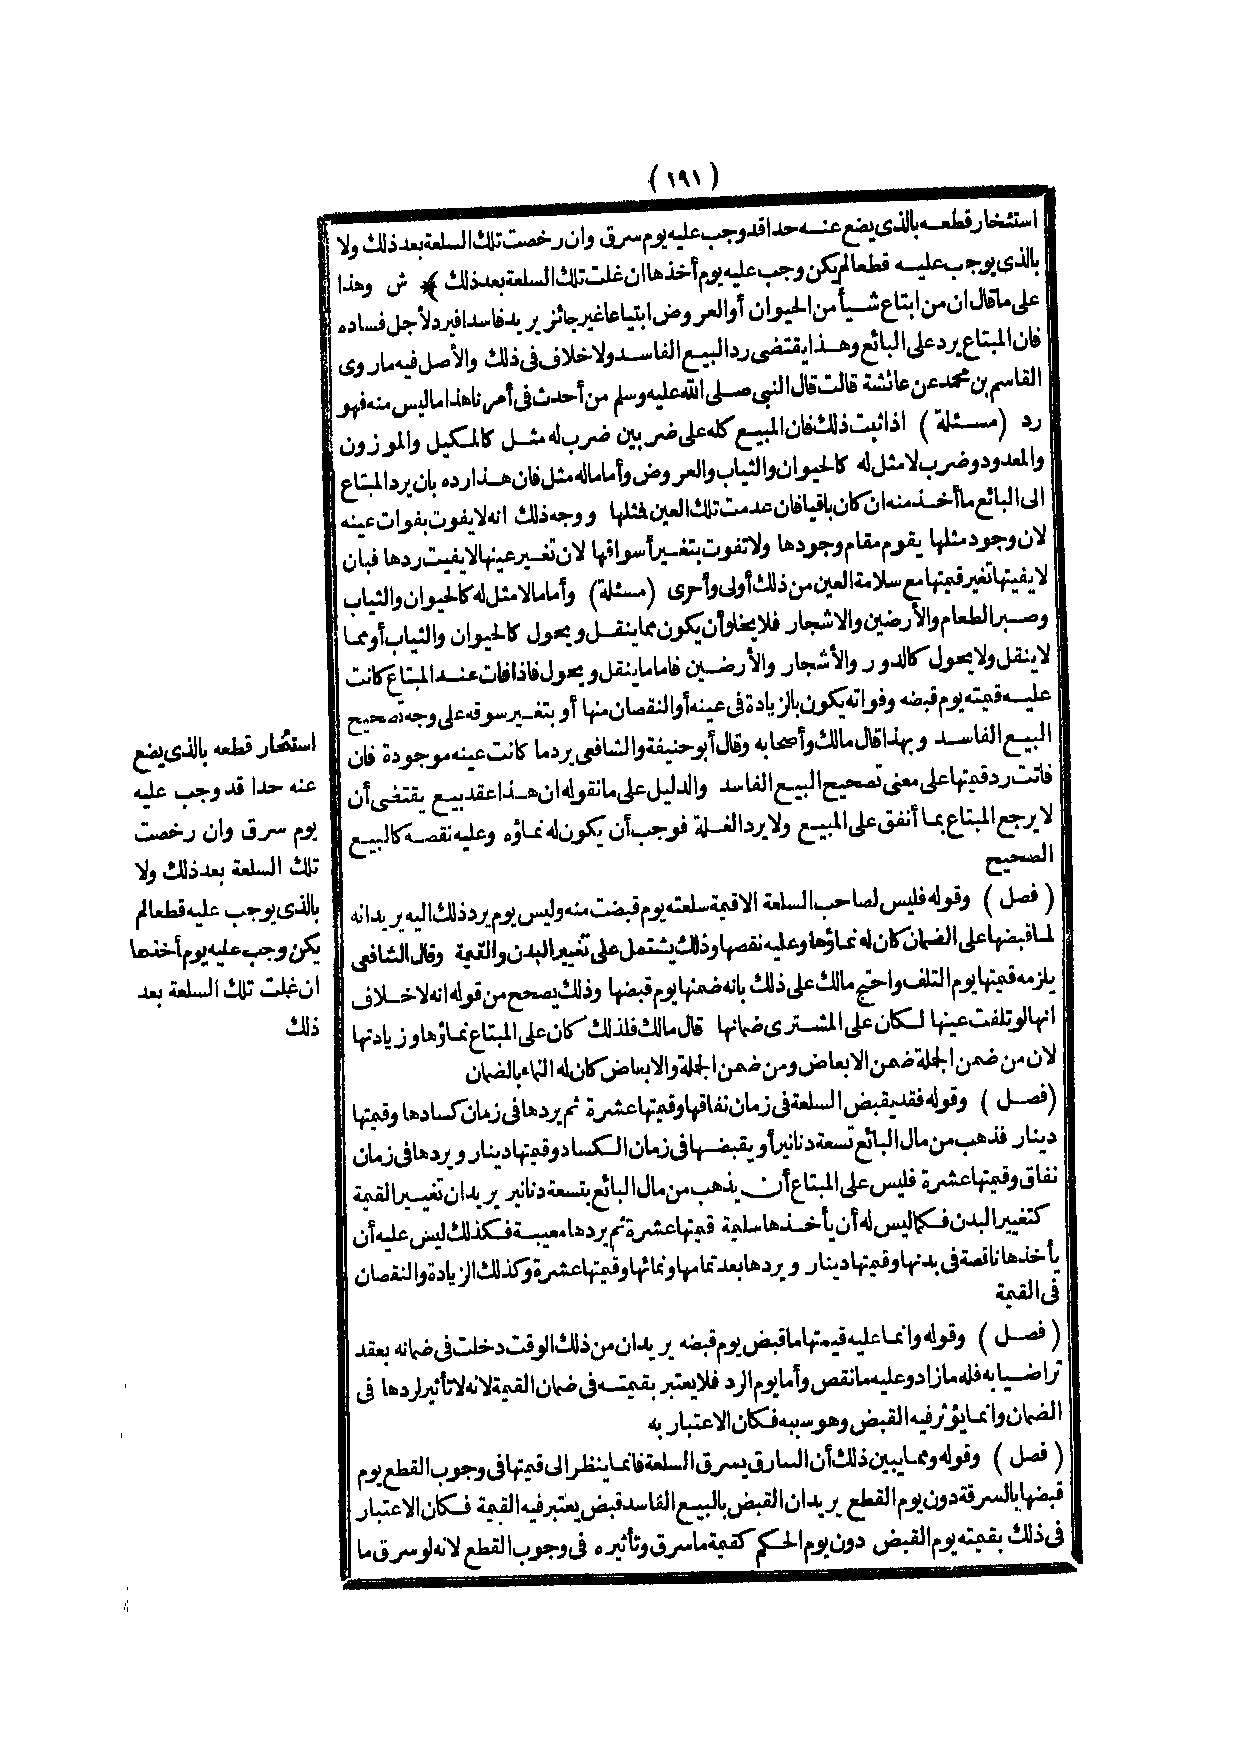 (١٩١)
استئخار قطعه بالذى يضع عنه حدا قد وجب عليه يوم سرق وان رخصت تلك السلعة بعد ذلك ولا
بالذى يوجب عليه قطعا لم يكن وجب عليه يوم أخذها ان غلت تلك السلعة بعد ذلك * ش وهذا
على ما قال ان من ابتاع شيأ من الحيوان أو العروض ابتياعا غير جائز يريد فاسدا فيرد لأجل فساده
فان المبتاع يرد على البائع وهذا يقتضى رد البيع الفاسد ولا خلاف فى ذلك والأصل فيه ما روى
القاسم بن محمد عن عائشة قالت قال النبى صلى الله عليه وسلم من أحدث فى أمرنا هذا ما ليس منه فهو
رد (مسئلة) اذا ثبت ذلك فان المبيع كله على ضربين ضرب له مثل كالمكيل والموزون
والمعدود وضرب لا مثل له كالحيوان والثياب والعروض وأما ما له مثل فان هذا رده بان يرد المبتاع
الى البائع ما أخذ منه ان كان باقيا فان عدمت تلك العين فمثلها ووجه ذلك انه لا يفوت بفوات عينه
لان وجود مثلها يقوم مقام وجودها ولا تفوت بتغير أسواقها لان تغير عينها لا يفيت ردها فبان
لا يفيتها تغير قيمتها مع سلامة العين من ذلك أولى وأحرى (مسئلة) وأما ما لا مثل له كالحيوان والثياب
وصبر الطعام والأرضين والاشجار فلا يخلو أن يكون مما ينقل و يحول كالحيوان والثياب أو مما
لا ينقل ولا يحول كالدور والأشجار والأرضين فاما ما ينقل و يحول فاذا فات عند المبتاع كانت
عليه قيمته يوم قبضه وفواته يكون بالزيادة فى عينه أو النقصان منها أو بتغير سوقه على وجه تصحيح
البيع الفاسد وبهذا قال مالك وأصحابه وقال أبو حنيفة والشافعى يرد ما كانت عينه موجودة فان
فاتت رد قيمتها على معنى تصحيح البيع الفاسد والدليل على ما نقوله ان هذا عقد بيع يقتضى أن
لا يرجع المبتاع بما أنفق على المبيع ولا يرد الغلة فوجب أن يكون له نماؤه وعليه نقصه كالبيع
الصحيح
(فصل) وقوله فليس لصاحب السلعة الا قيمة سلعته يوم قبضت منه وليس يوم يرد ذلك اليه يريد انه
لما قبضها على الضمان كان له نماؤها وعليه نقصها وذلك يشتمل على تغير البدن والقيمة وقال الشافعى
يلزمه قيمتها يوم التلف واحتج مالك على ذلك بانه ضمنها يوم قبضها وذلك يصحح من قوله انه لا خلاف
انها لو تلفت عينها لكان على المشترى ضمانها قال مالك فلذلك كان على المبتاع نماؤها وزيادتها
لان من ضمن الجملة ضمن الابعاض ومن ضمن الجملة والابعاض كان له النماء بالضمان
(فصل) وقوله فقد يقبض السلعة فى زمان نفاقها وقيمتها عشرة ثم يردها فى زمان كسادها وقيمتها
دينار فذهب من مال البائع تسعة دنانير أو يقبضها فى زمان الكساد وقيمتها دينار ويردها فى زمان
نفاق وقيمتها عشرة فليس على المبتاع أن يذهب من مال البائع بتسعة دنانير يريد ان تغيير القيمة
كتغيير البدن فكما ليس له أن يأخذها سليمة قيمتها عشرة ثم يردها معيبة فكذلك ليس عليه أن
يأخذها ناقصة فى بدنها وقيمتها دينار ويردها بعد تمامها ونمائها وقيمتها عشرة وكذلك الزيادة والنقصان
فى القيمة
(فصل) وقوله وانما عليه قيمتها ما قبض يوم قبضه يريد ان من ذلك الوقت دخلت فى ضمانه بعقد
تراضيا به فله ما زاد وعليه ما نقص وأما يوم الرد فلا يعتبر بقيمته فى ضمان القيمة لانه لا تأثير لردها فى
الضمان وانما يؤثر فيه القبض وهو سببه فكان الاعتبار به
(فصل) وقوله ومما يبين ذلك أن السارق يسرق السلعة فانما ينظر الى قيمتها فى وجوب القطع يوم
قبضها بالسرقة دون يوم القطع يريد ان القبض بالبيع الفاسد قبض يعتبر فيه القيمة فكان الاعتبار
فى ذلك بقيمته يوم القبض دون يوم الحكم كقيمة ما سرق وتأثيره فى وجوب القطع لانه لو سرق ما
استئخار قطعه بالذى يضع
عنه حدا قد وجب عليه
يوم سرق وان رخصت
تلك السلعة بعد ذلك ولا
بالذى يوجب عليه قطعا لم
يكن وجب عليه يوم أخذها
ان غلت تلك السلعة بعد
ذلك